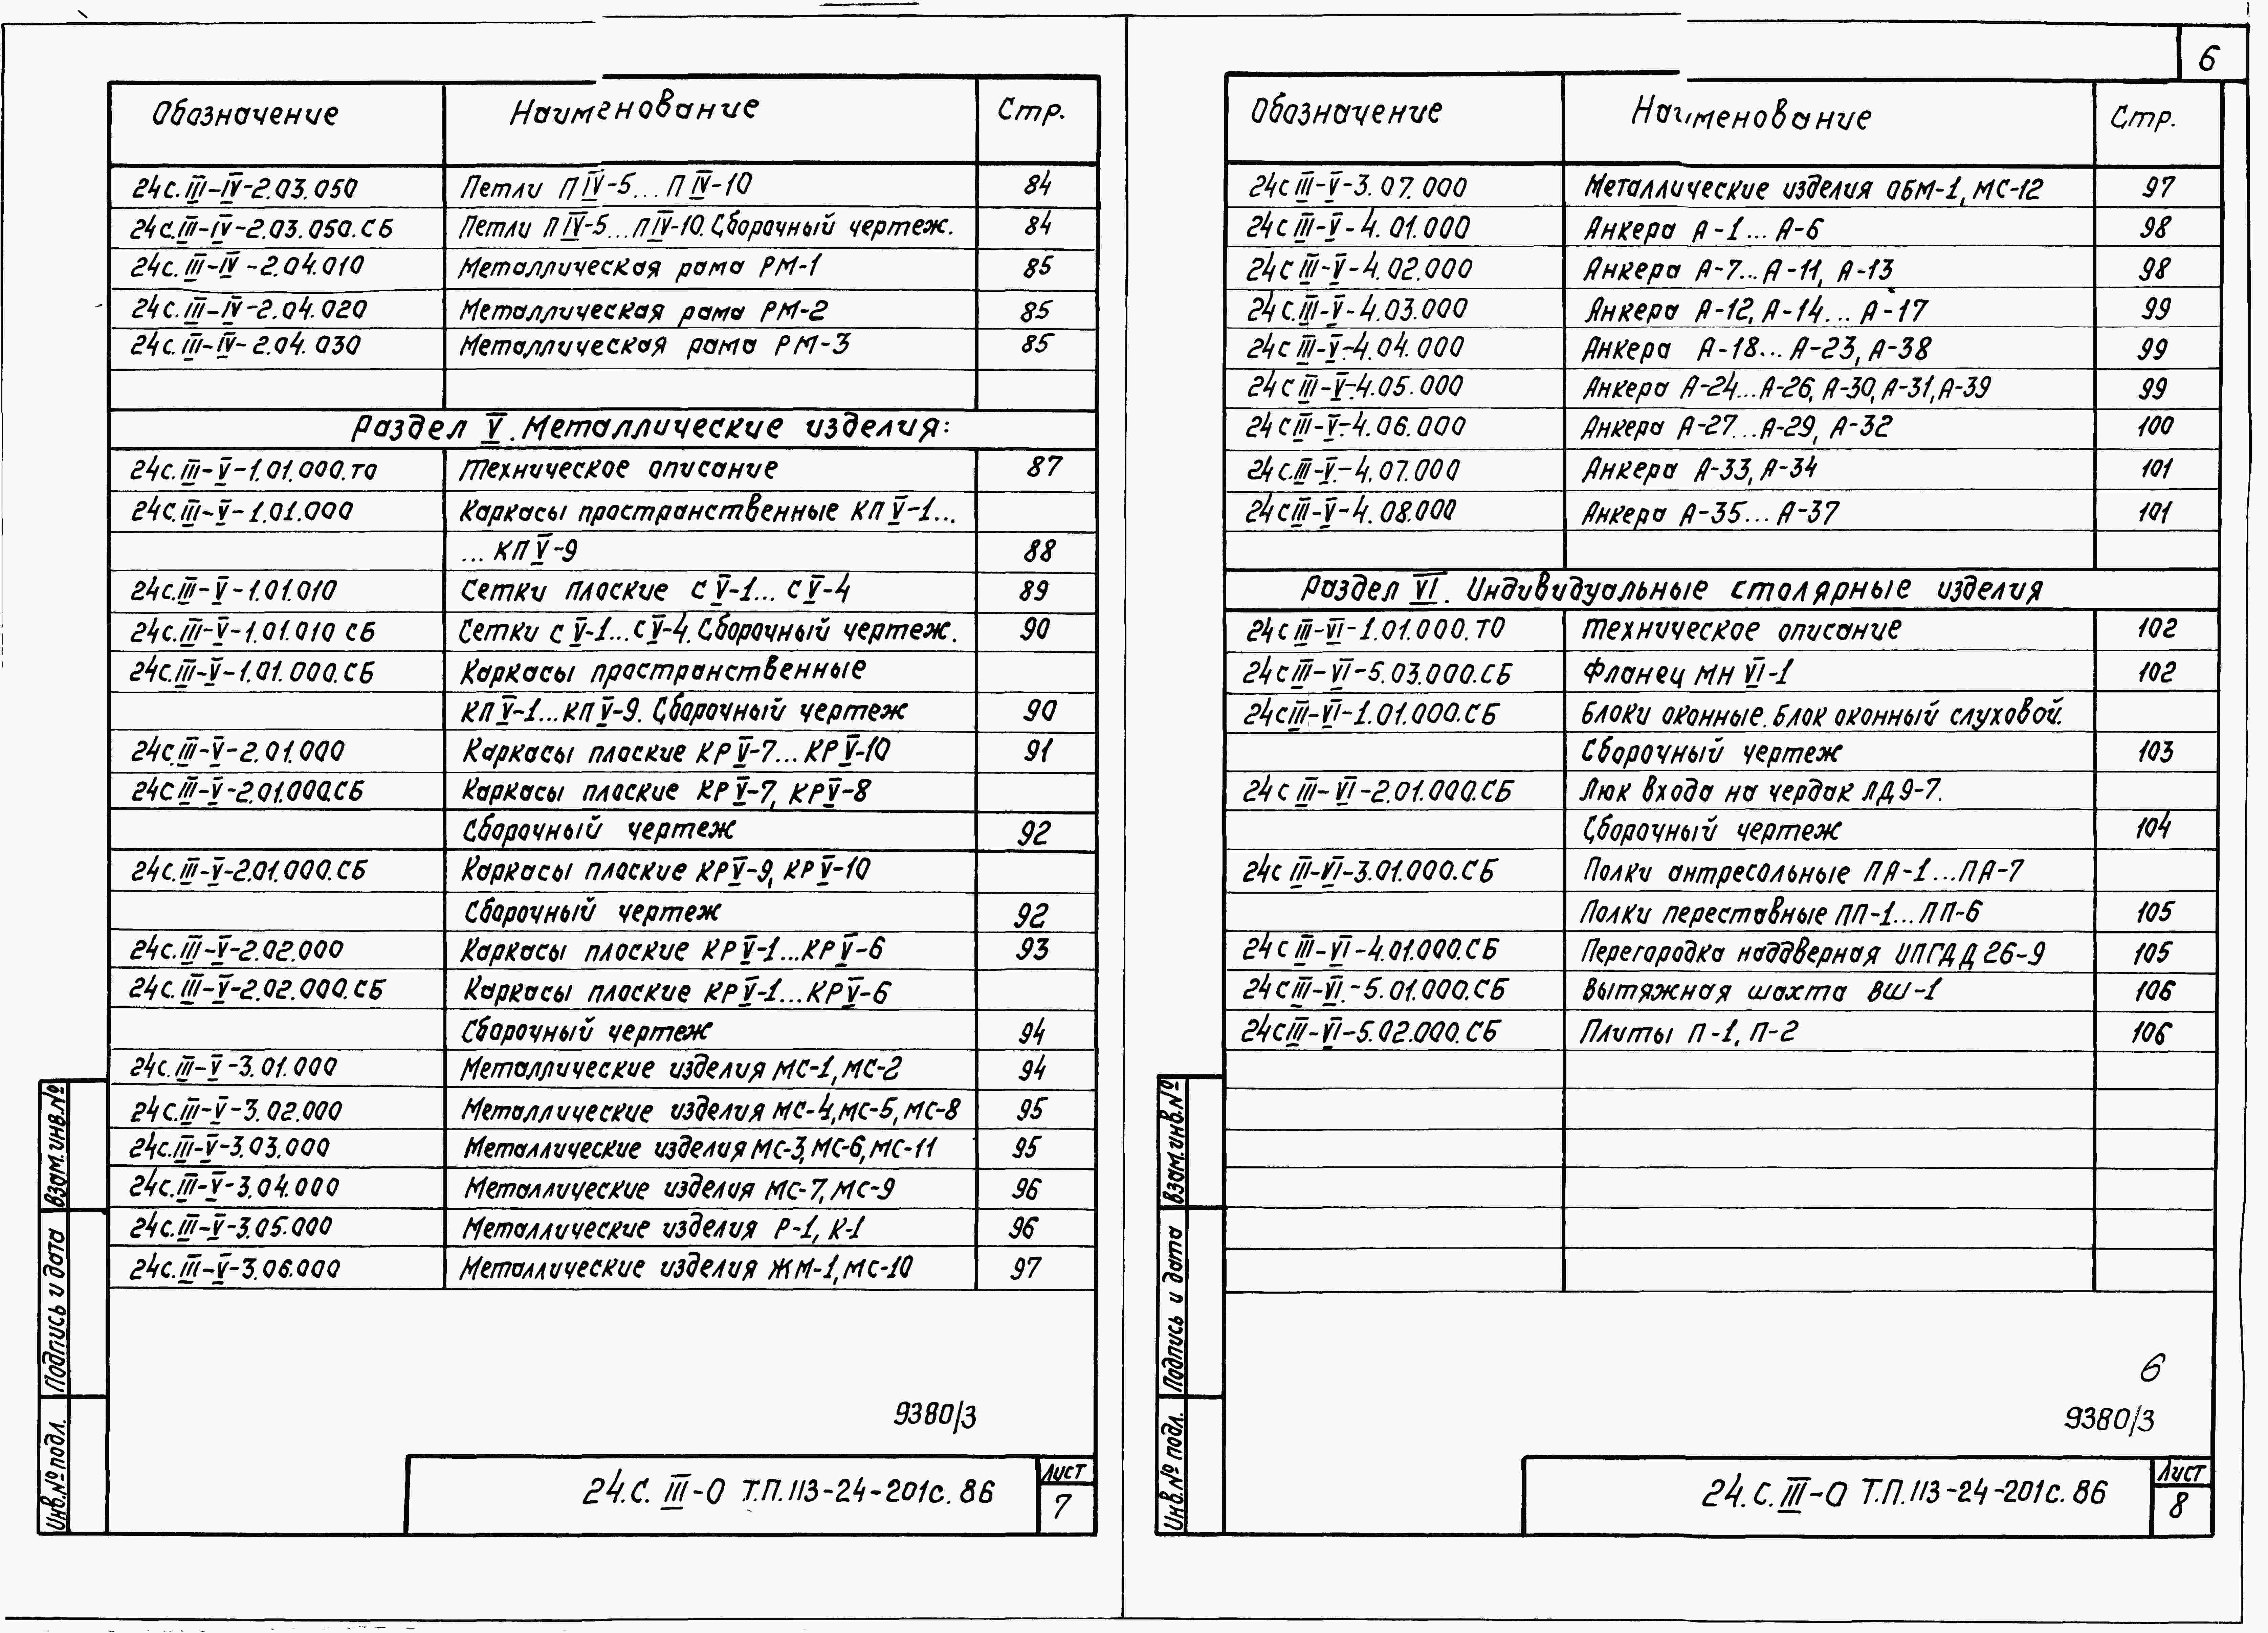 6
Обозначение Наименование Стр.
24с.III-IV-2.03.050 Петли ПIV-5...ПIV-10 84
24с.III-IV-2.03.050.СБ Петли ПIV-5...ПIV-10. Сборочный чертеж. 84
24с.III-IV-2.04.010 Металлическая рама РМ-1 85
24с.III-IV-2.04.020 Металлическая рама РМ-2 85
24с.III-IV-2.04.030 Металлическая рама РМ-3 85
Раздел V. Металлические изделия:
24с.III-V-1.01.000.ТО Техническое описание 87
24с.III-V-1.01.000 Каркасы пространственные КПV-1...
...КПV-9 88
24с.III-V-1.01.010 Сетки плоские СV-1...СV-4 89
24с.III-V-1.01.010 СБ Сетки СV-1...СV-4. Сборочный чертеж. 90
24с.III-V-1.01.000.СБ Каркасы пространственные
КПV-1...КПV-9. Сборочный чертеж 90
24с.III-V-2.01.000 Каркасы плоские КРV-7...КРV-10 91
24с III-V-2.01.000.СБ Каркасы плоские КРV-7, КРV-8
Сборочный чертеж 92
24с.III-V-2.01.000.СБ Каркасы плоские КРV-9, КРV-10
Сборочный чертеж 92
24с.III-V-2.02.000 Каркасы плоские КРV-1...КРV-6 93
24с.III-V-2.02.000.СБ Каркасы плоские КРV-1...КРV-6
Сборочный чертеж 94
24с.III-V-3.01.000 Металлические изделия МС-1, МС-2 94
24с.III-V-3.02.000 Металлические изделия МС-4, МС-5, МС-8 95
24с.III-V-3.03.000 Металлические изделия МС-3, МС-6, МС-11 95
24с.III-V-3.04.000 Металлические изделия МС-7, МС-9 96
24с.III-V-3.05.000 Металлические изделия Р-1, К-1 96
24с.III-V-3.06.000 Металлические изделия ЖМ-1, МС-10 97
Взам.инв.№
Подпись и дата
Инв.№подл.
9380/3
24.С. III-0 Т.П.113-24-201с.86
Лист
7
Обозначение Наименование Стр.
24с III-V-3.07.000 Металлические изделия ОБМ-1, МС-12 97
24с III-V-4.01.000 Анкера А-1...А-6 98
24с III-V-4.02.000 Анкера А-7...А-11, А-13 98
24с.III-V-4.03.000 Анкера А-12, А-14...А-17 99
24с III-V-4.04.000 Анкера А-18...А-23, А-38 99
24с III-V-4.05.000 Анкера А-24...А-26, А-30, А-31, А-39 99
24с III-V-4.06.000 Анкера А-27...А-29, А-32 100
24с.III-V-4.07.000 Анкера А-33, А-34 101
24с III-V-4.08.000 Анкера А-35...А-37 101
Раздел VI. Индивидуальные столярные изделия
24с III-VI-1.01.000.ТО Техническое описание 102
24с III-VI-5.03.000.СБ Фланец МН VI-1 102
24с III-VI-1.01.000.СБ Блоки оконные. Блок оконный слуховой.
Сборочный чертеж 103
24с III-VI-2.01.000.СБ Люк входа на чердак ЛД9-7.
Сборочный чертеж 104
24с III-VI-3.01.000.СБ Полки антресольные ПА-1...ПА-7
Полки переставные ПП-1...ПП-6 105
24с III-VI-4.01.000.СБ Перегородка наддверная ИПГДД 26-9 105
24с III-VI-5.01.000.СБ Вытяжная шахта ВШ-1 106
24с III-VI-5.02.000.СБ Плиты П-1, П-2 106
Взам.инв.№
Подпись и дата
Инв.№ подл.
6
9380/3
24.С.III-0 Т.П.113-24-201с.86
Лист
8